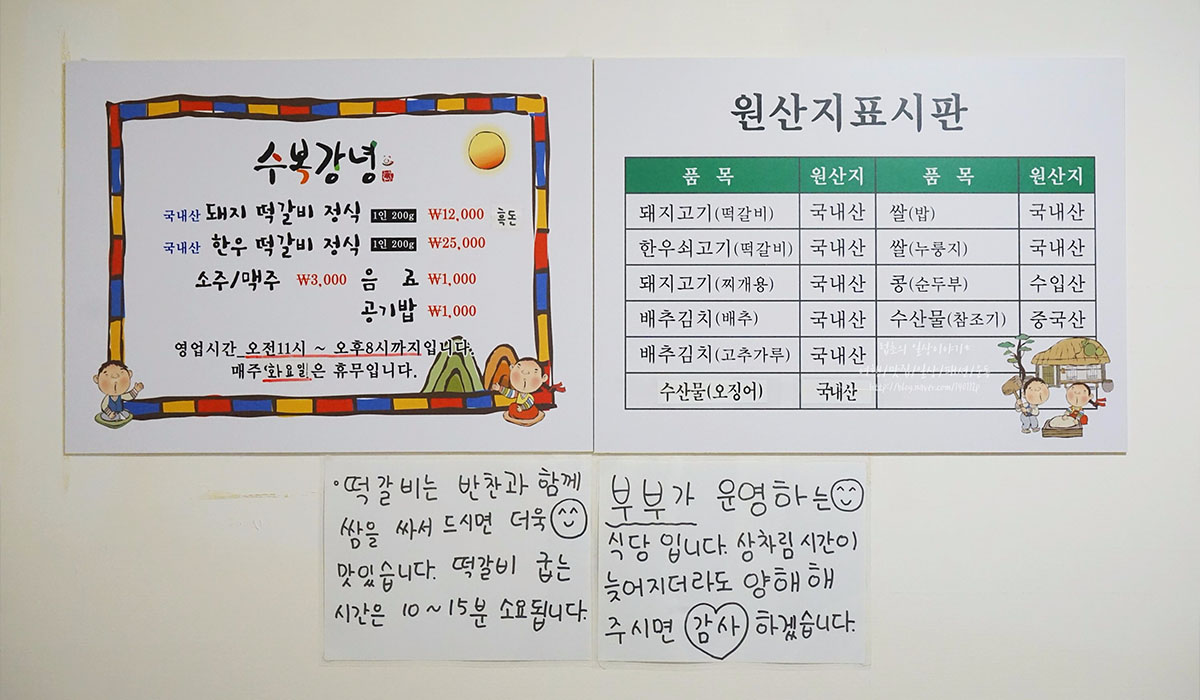 수복강녕
국내산 돼지 떡갈비 정식 1인 200g ₩12,000 흑돈
국내산 한우 떡갈비 정식 1인 200g ₩25,000
소주/맥주 ₩3,000 음 료 ₩1,000
공기밥 ₩1,000
영업시간 오전11시 ~ 오후8시까지입니다.
매주'화요일'은 휴무입니다.
원산지표시판
품 목 원산지 품 목 원산지
돼지고기(떡갈비) 국내산 쌀(밥) 국내산
한우쇠고기(떡갈비) 국내산 쌀(누룽지) 국내산
돼지고기(찌개용) 국내산 콩(순두부) 수입산
배추김치(배추) 국내산 수산물(참조기) 중국산
배추김치(고추가루) 국내산
수산물(오징어) 국내산
떡갈비는 반찬과 함께
쌈을 싸서 드시면 더욱
맛있습니다. 떡갈비 굽는
시간은 10~15분 소요됩니다.
부부가 운영하는
식당 입니다. 상차림 시간이
늦어지더라도 양해해
주시면 감사 하겠습니다.